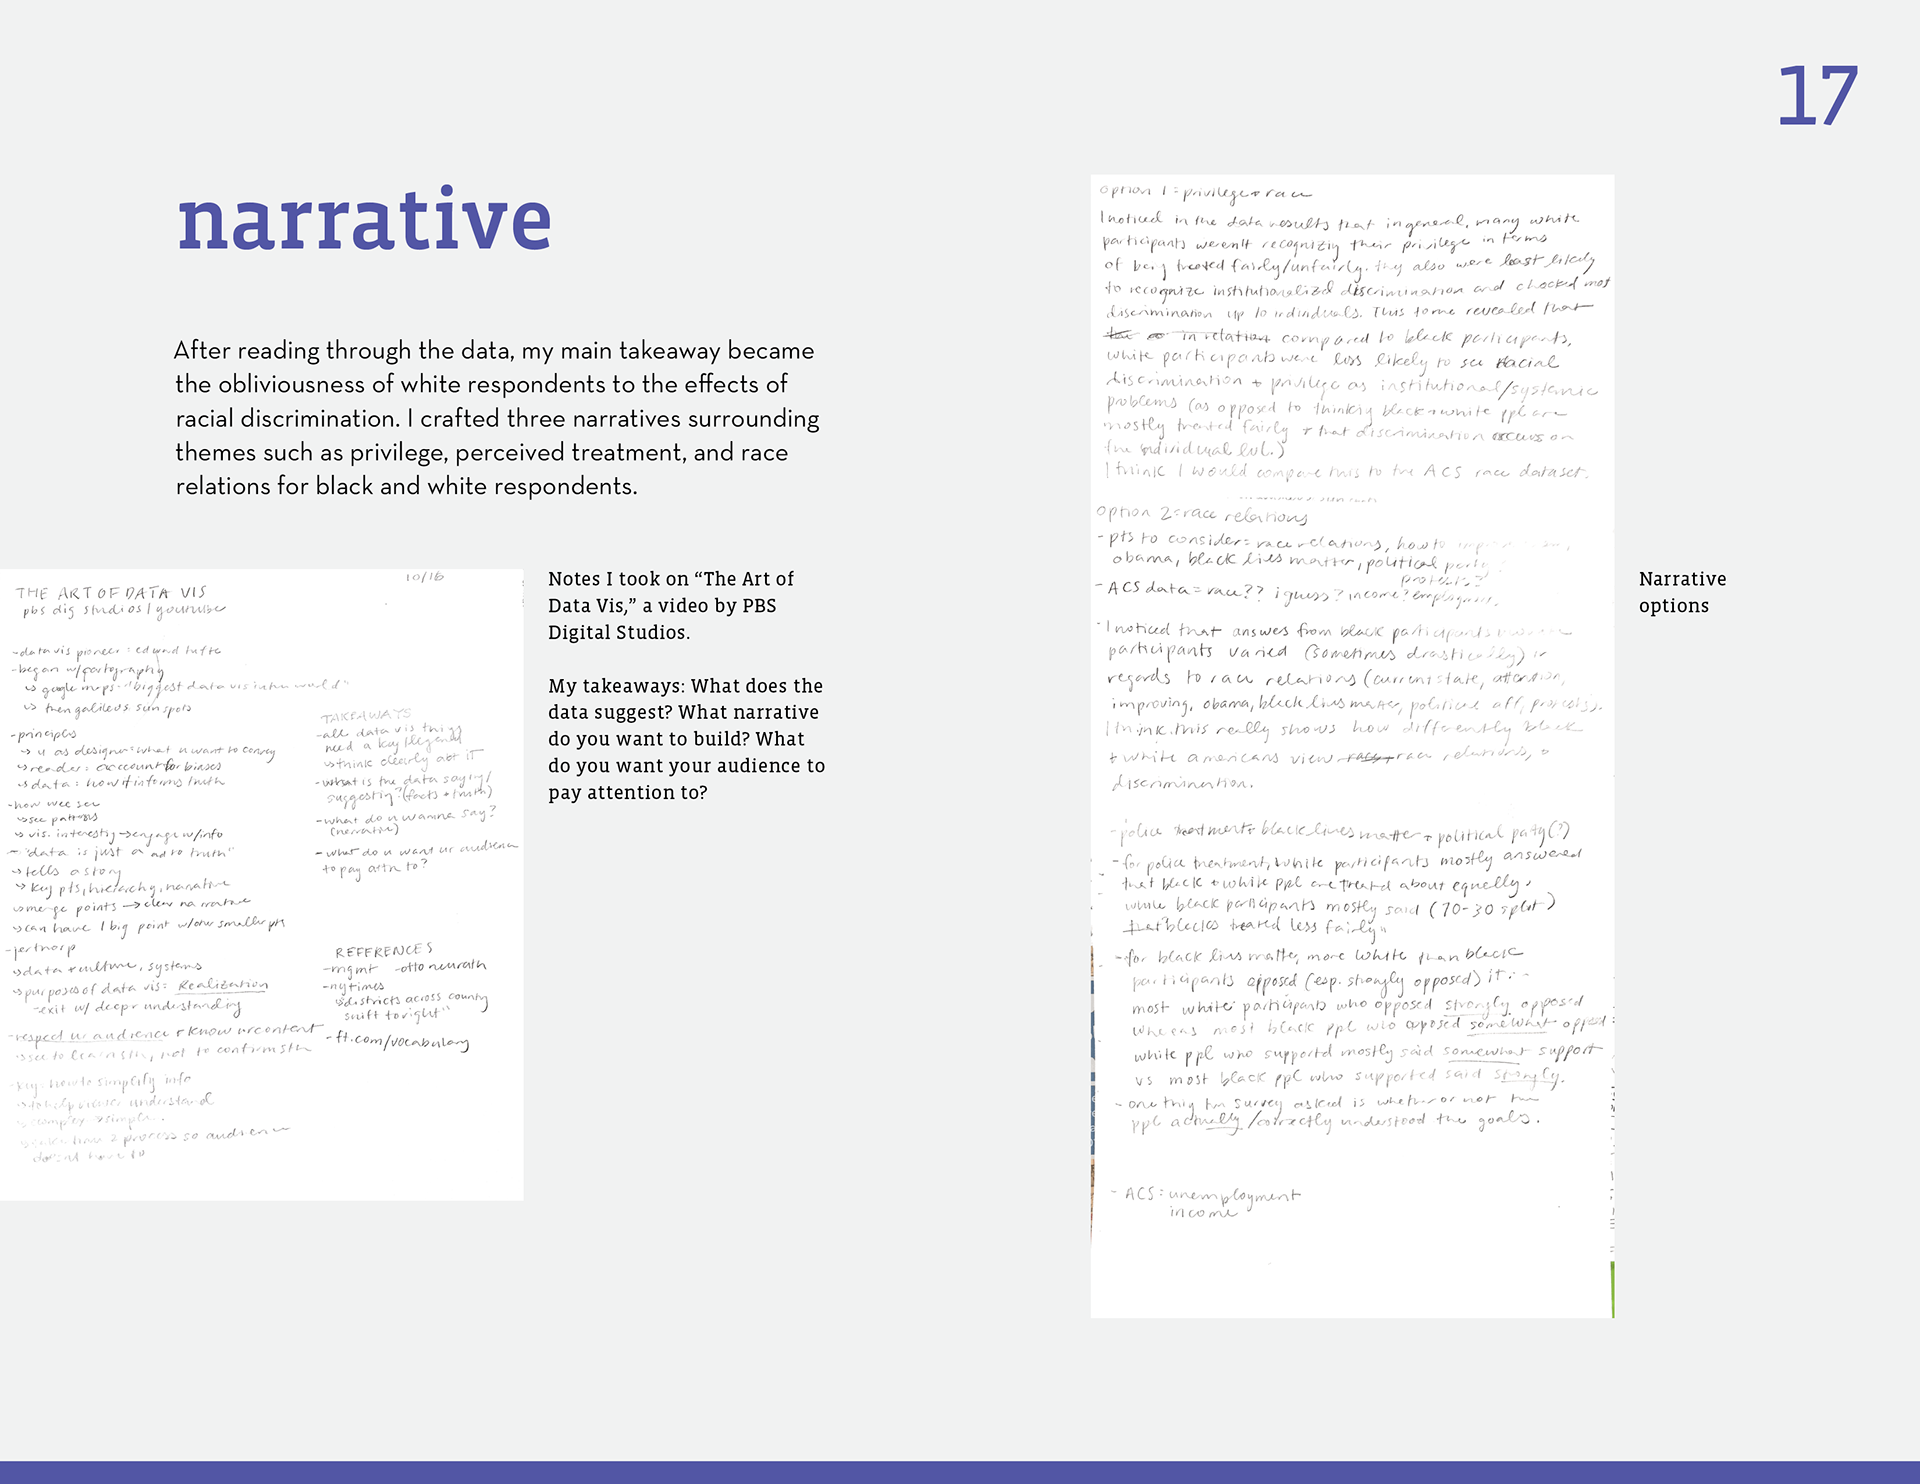 17
narrative
After reading through the data, my main takeaway became
the obliviousness of white respondents to the effects of
racial discrimination. I crafted three narratives surrounding
themes such as privilege, perceived treatment, and race
relations for black and white respondents.
10/16
THE ART OF DATA VIS
pbs dig studios / youtube
-data vis pioneer: edward tufte
-began w/ cartography
↳ google maps - "biggest data vis in the world"
↳ then galileo's sun spots
-principles
↳ u as designer = what u want to convey
↳ reader: account for biases
↳ data: how it informs truth
-how we see
↳ see patterns
↳ vis. interestig → engage w/info
- "data is just a" "truth"
↳ tells a story
↳ key pts, hierarchy, narrative
↳ merge points → clear narrative
↳ can have 1 big point w/ smaller pts
-jer thorp
↳ data + culture, systems
↳ purposes of data vis: Realization
-exit w/ deeper understanding
-respect ur audience + know ur content
↳ see to learn sth, not to confirm sth
-key: how to simplify info
↳ to help viewer understand
↳ complex → simple.
process so audience
doesnt have to
TAKEAWAYS
-all data vis things
need a key/legend
↳ think clearly abt it
-what is the data saying/
suggestig? (facts + truth)
-what do u wanna say?
(narrative)
-what do u want ur audience
to pay attn to?
REFERENCES
-mgmt -otto neurath
-nytimes
↳ "districts across county
shift to right"
-ft.com/vocabulary
Notes I took on “The Art of
Data Vis,” a video by PBS
Digital Studios.
My takeaways: What does the
data suggest? What narrative
do you want to build? What
do you want your audience to
pay attention to?
option 1 = privilege + race
I noticed in the data results that in general, many white
participants weren't recognizig their privilege in terms
of being treated fairly/unfairly. they also were least likely
to recognize institutionalized discrimination and chocked most
discrimination up to individuals. This to me revealed that
in relation compared to black participants,
white participants were less likely to see racial
discrimination + privilege as institutional/systemic
problems (as opposed to thinkig black + white ppl are
mostly treated fairly + that discrimination occurs on
the individual lvl.)
I think I would compare this to the ACS race dataset.
option 2 = race relations
-pts to consider = race relations, how to
obama, black lives matter, political party
protests?
-ACS data = race?? i guess? income? employment.
-I noticed that answes from black participants
participants varied (sometimes drastically) in
regards to race relations (current state, attention,
improving, obama, black lives matter, political aff, protests).
I think this really shows how differently black
+ white americans view race relations, +
discrimination.
-police treatment + black lives matter + political party (?)
-for police treatment, white participants mostly answered
that black + white ppl are treated about equally,
while black participants mostly said (70-30 split)
that blacks treated less fairly.
-for black lives matter, more white than black
participants opposed (esp. strongly opposed) it.
most white participants who opposed strongly opposed
whereas most black ppl who opposed somewhat opposed
white ppl who supported mostly said somewhat support
vs most black ppl who supported said strongly.
-one thig the survey asked is whether or not the
ppl actually/correctly understood the goals.
-ACS = unemployment
income
Narrative
options